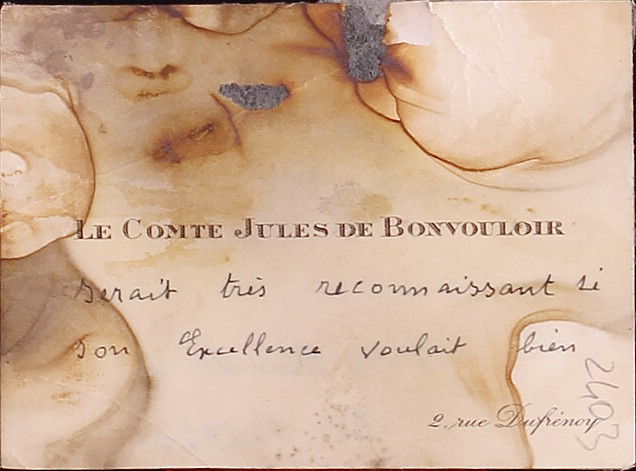 LE COMTE JULES DE BONVOULOIR
serait très reconnaissant si
Son Excellence voulait bien
2, rue Dufrénoy
2403